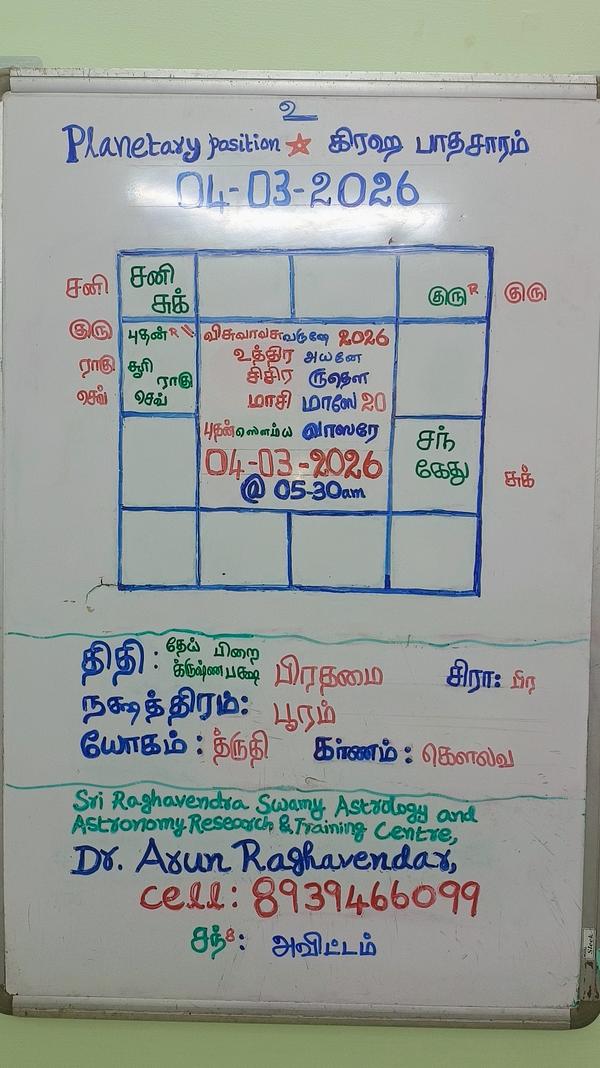 உ
Planetary position கிரஹ பாதசாரம்
04-03-2026
சனி
சனி
சுக்
குரு R
குரு
குரு
புதன் R \\
ராகு
சூரி
ராகு
செவ்
செவ்
விசுவாவசு வருஷே 2026
உத்திர அயனே
சிசிர ருதௌ
மாசி மாஸே 20
புதன் ஸௌம்ய வாஸரே
04-03-2026
@ 05-30am
சந்
கேது
சுக்
திதி : தேய் பிறை
க்ருஷ்ண பக்ஷ பிரதமை சிரா: பிர
நக்ஷத்திரம்: பூரம்
யோகம் : த்ருதி கரணம் : கௌலவ
Sri Raghavendra Swamy Astrology and
Astronomy Research & Training Centre,
Dr. Arun Raghavendar,
cell: 8939466099
சந் 8: அவிட்டம்